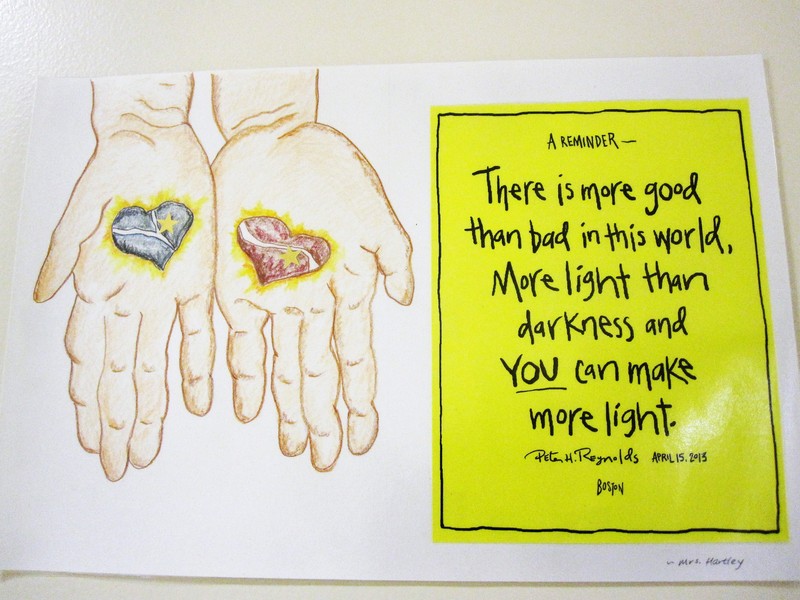 A REMINDER—
There is more good
than bad in this world,
More light than
darkness and
YOU can make
more light.
Peter H. Reynolds APRIL 15, 2013
BOSTON
~ Mrs. Hartley